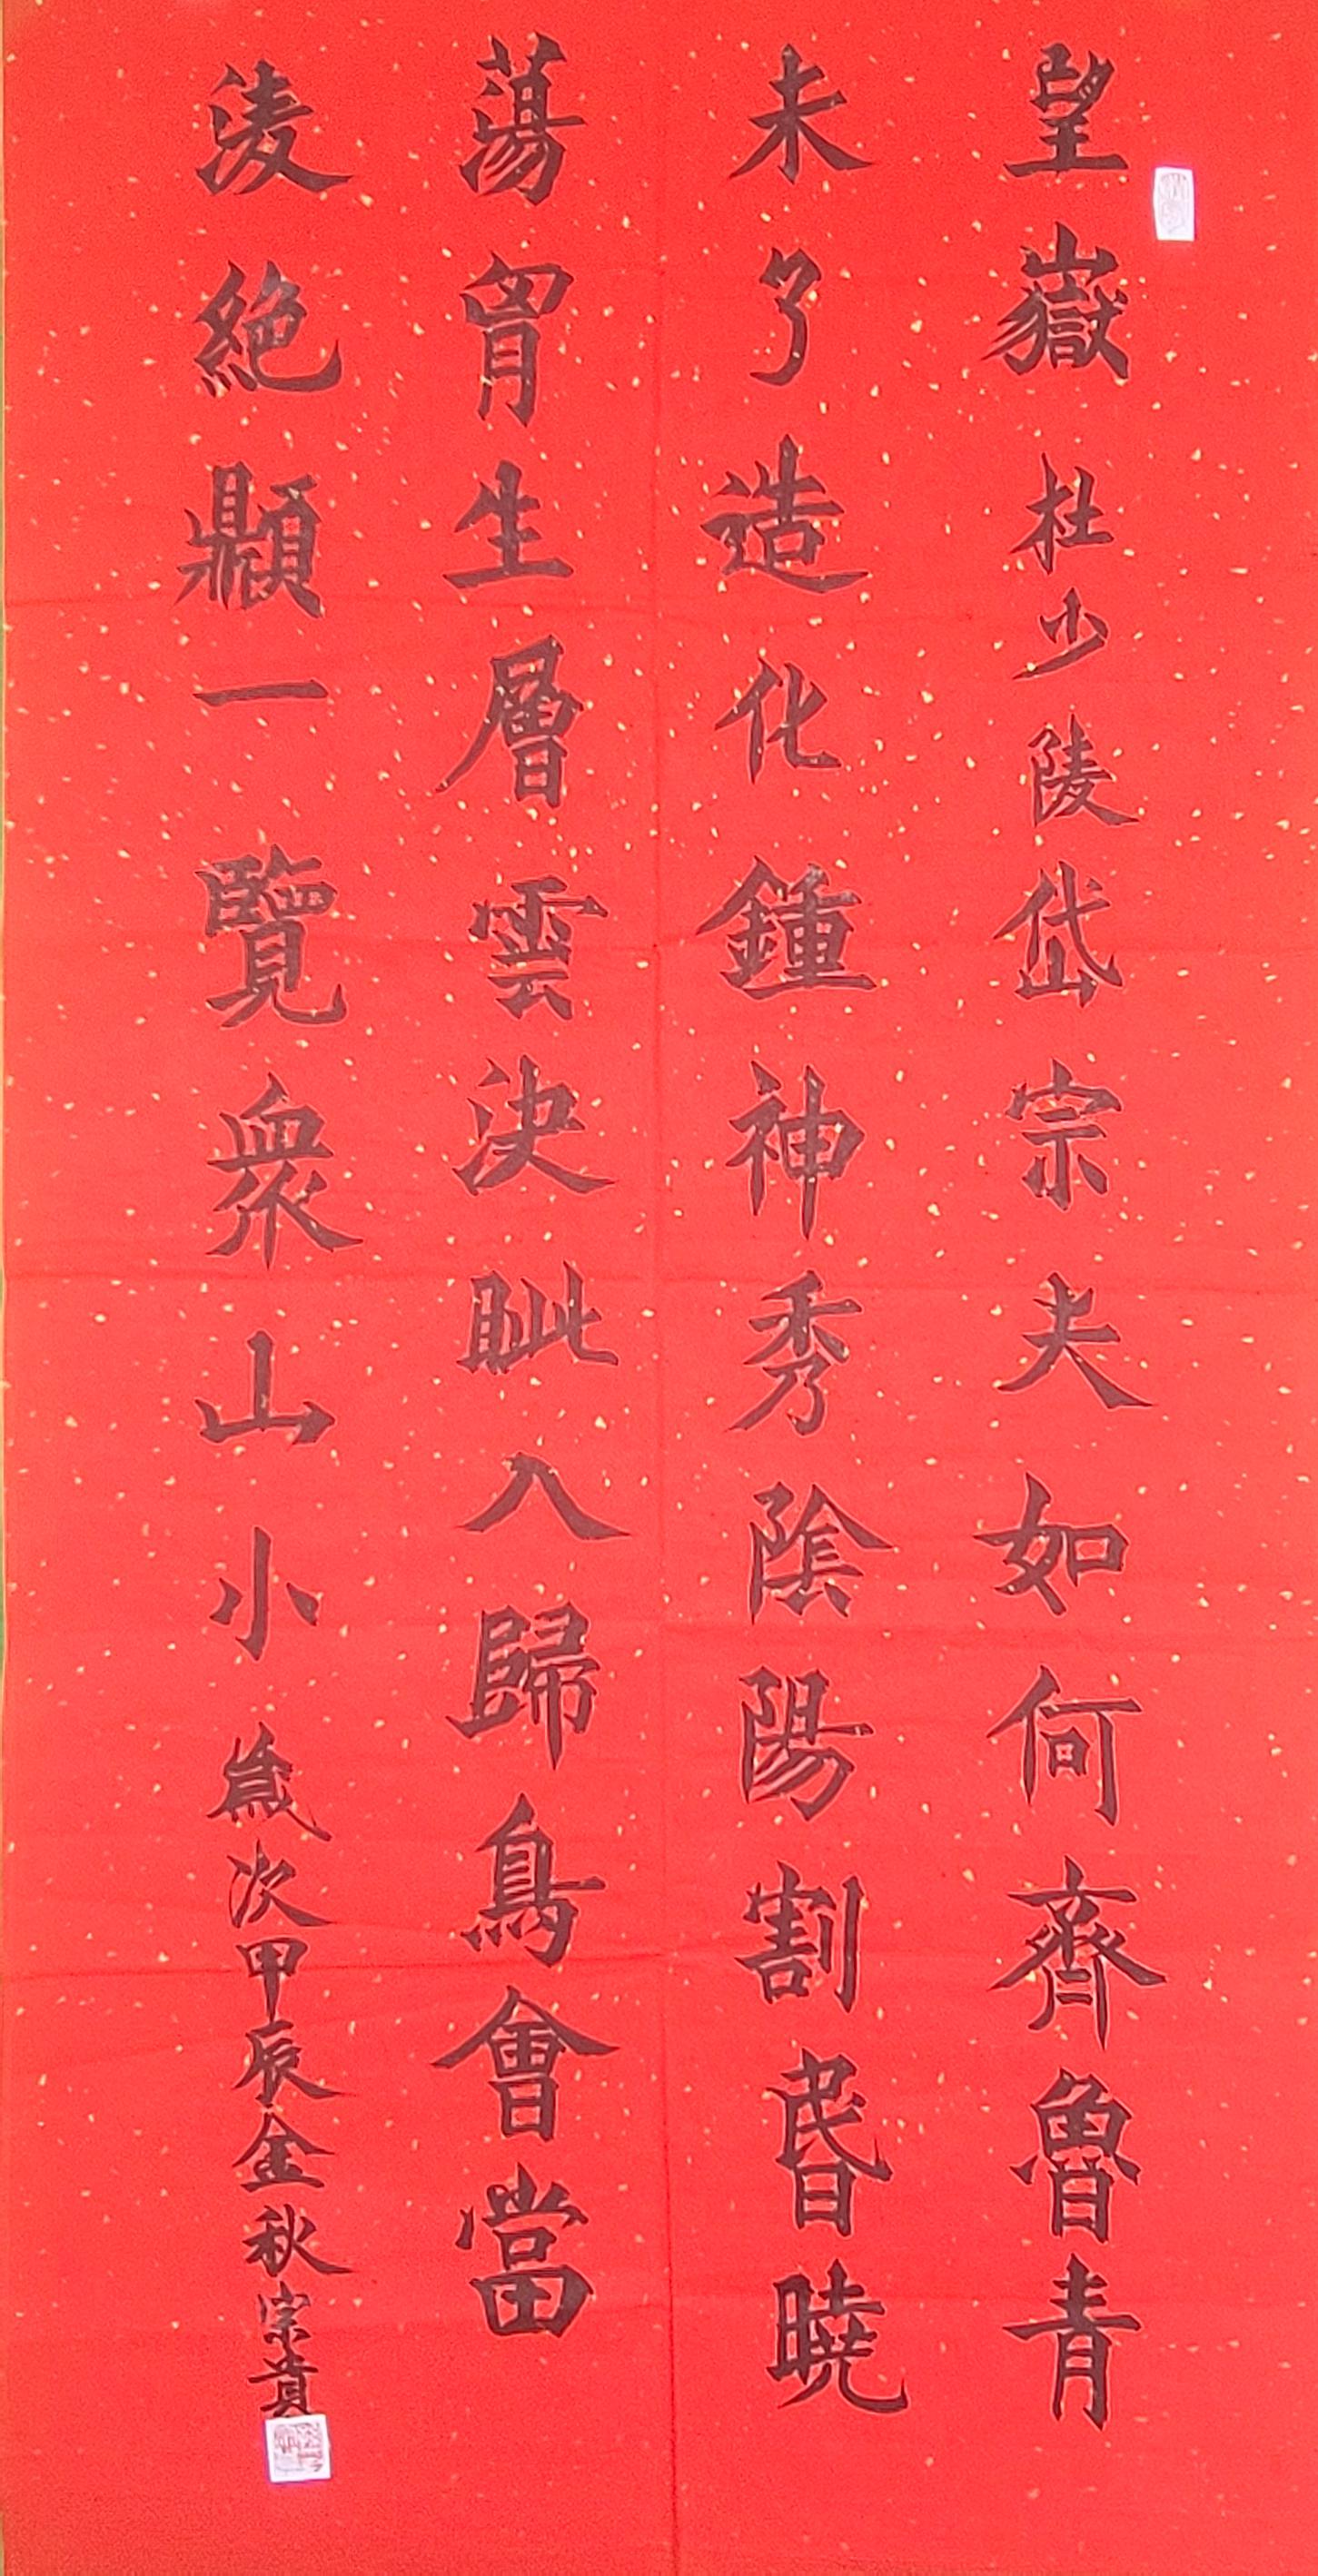 望嶽杜少陵岱宗夫如何齊魯青
未了造化鍾神秀陰陽割昬曉
蕩胷生層雲決眦入歸鳥會當
凌絕顚一覽衆山小歲次甲辰金秋宗貴